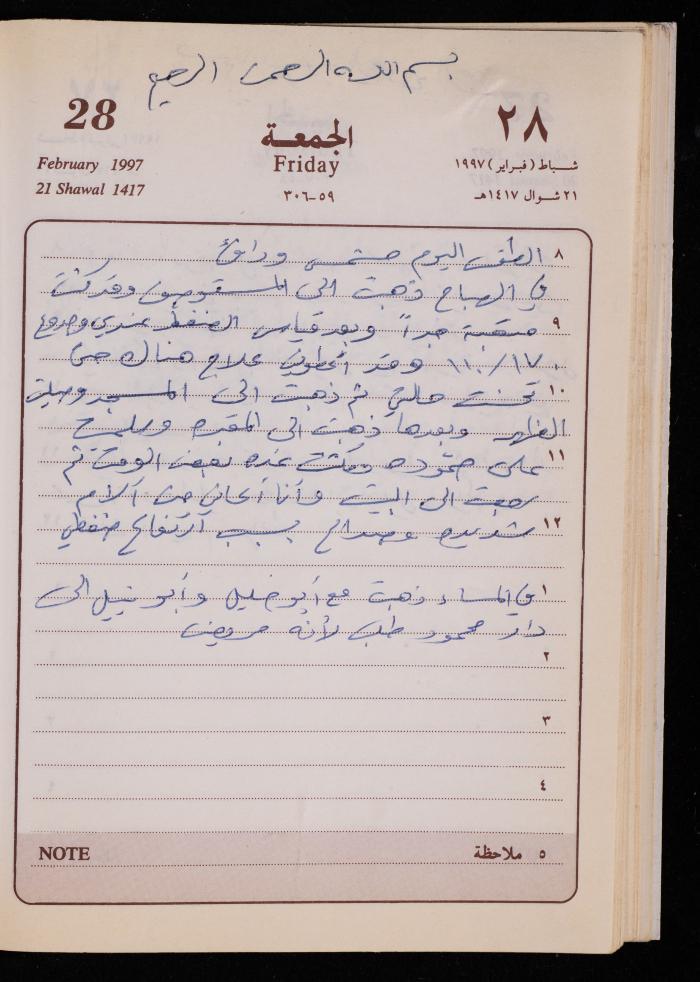 بسم الله الرحمن الرحيم
28
الجمعة
٢٨
February 1997
Friday
شباط (فبراير) ١٩٩٧
21 Shawal 1417
٥٩-٣٠٦
٢١ شوال ١٤١٧هـ
٨ الطقس اليوم مشمس ودافئ
في الصباح ذهبت الى المستوصف وقد كنت
٩ متعبة جداً وبعد قياس الضغط عندي وجدوه
١١٠/١٧٠ وقد اعطوني علاج هناك حتى
١٠ تحسنت حالتي ثم ذهبت الى المسجد وصليت
الظهر وبعدها ذهبت الى المقبره وسلمت
١١ على حموده ومكثت عنده بعض الوقت ثم
رجعت الى البيت وأنا أعاني من آلام
١٢ شديده وصداع بسبب آرتفاع ضغطي
١ في المساء ذهبت مع أبو خليل وأبو نبيل الى
دار محمود طلب لأنه مريض
٢
٣
٤
NOTE
٥ ملاحظة